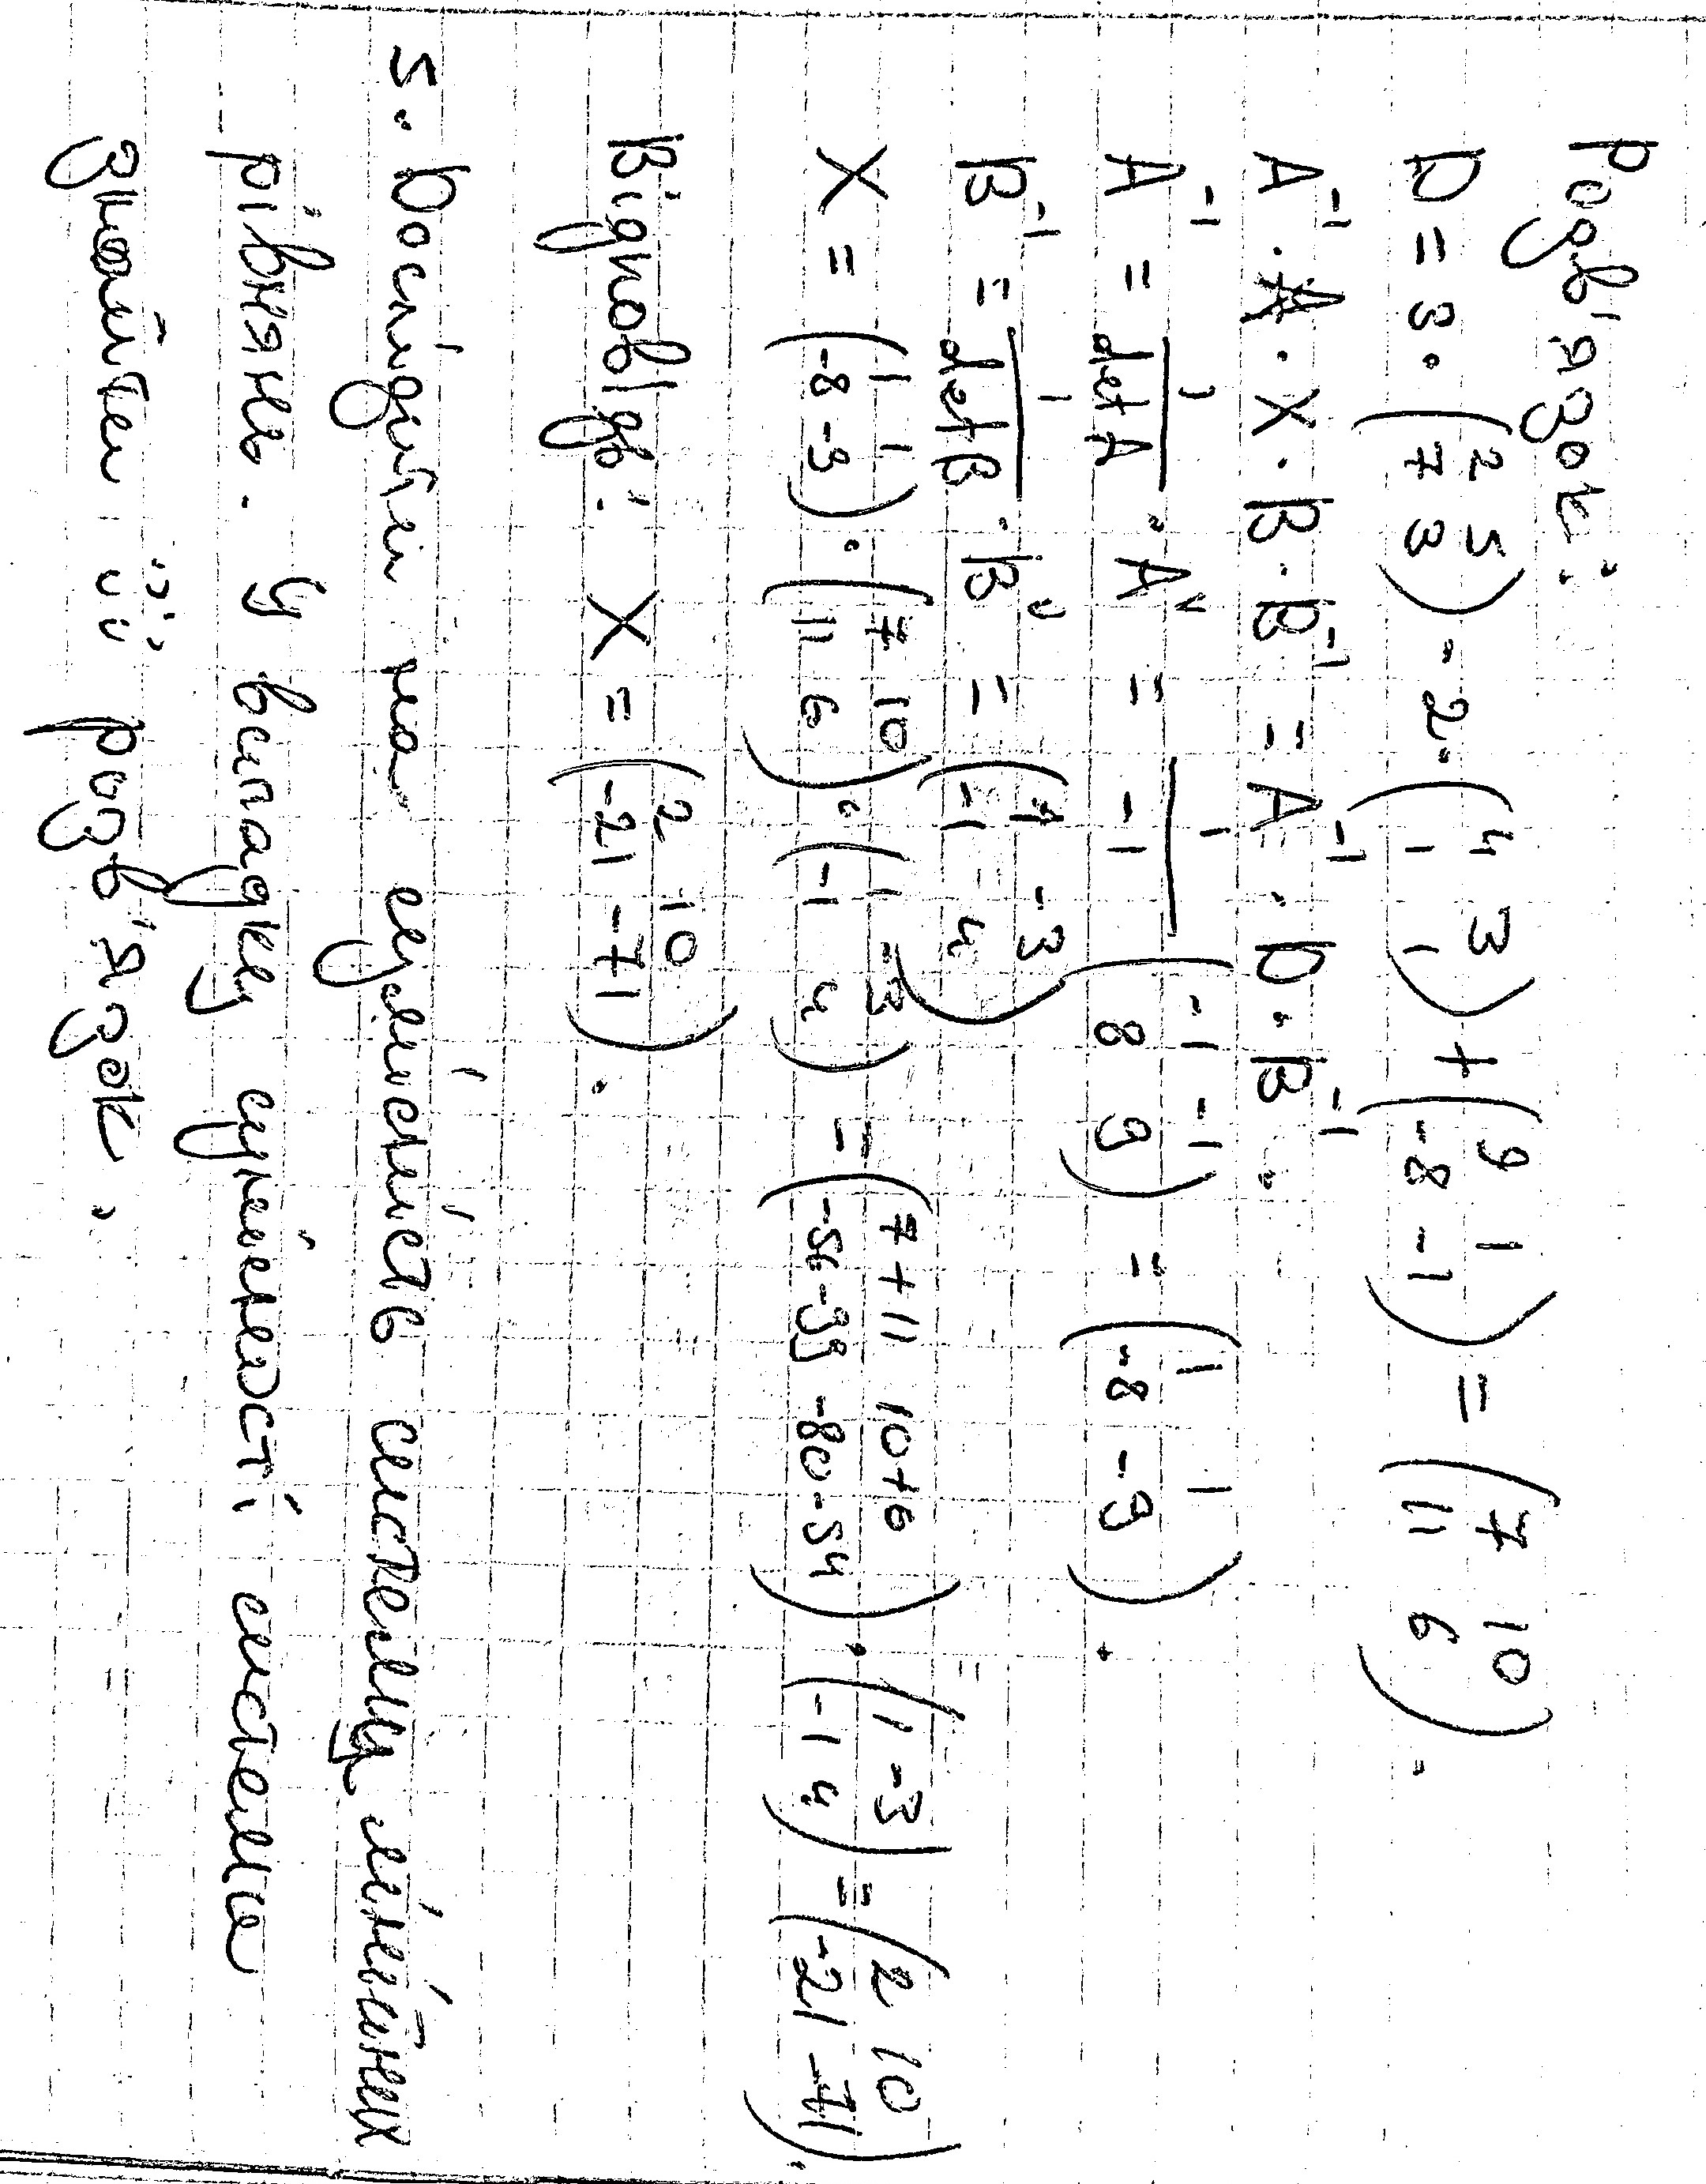 Розв'язок:
D = 3 · (2 5; 7 3) - 2 · (4 3; 1 1) + (9 1; -8 -1) = (7 10; 11 6).
A⁻¹ · A · X · B · B⁻¹ = A⁻¹ · D · B⁻¹.
A⁻¹ = 1/det A · Aᵛ = 1/-1 (-1 -1; 8 9) = (1 1; -8 -9).
B⁻¹ = 1/det B · Bᵛ = (1 -3; -1 4)
X = (1 1; -8 -9) · (7 10; 11 6) · (1 -3; -1 4) = (7+11 10+6; -56-99 -80-54) · (1 -3; -1 4) = (2 10; -21 -71).
Відповідь: X = (2 10; -21 -71).
5. Дослідити на сумісність систему лінійних
рівнянь. У випадку сумісності системи
знайти її розв'язок.